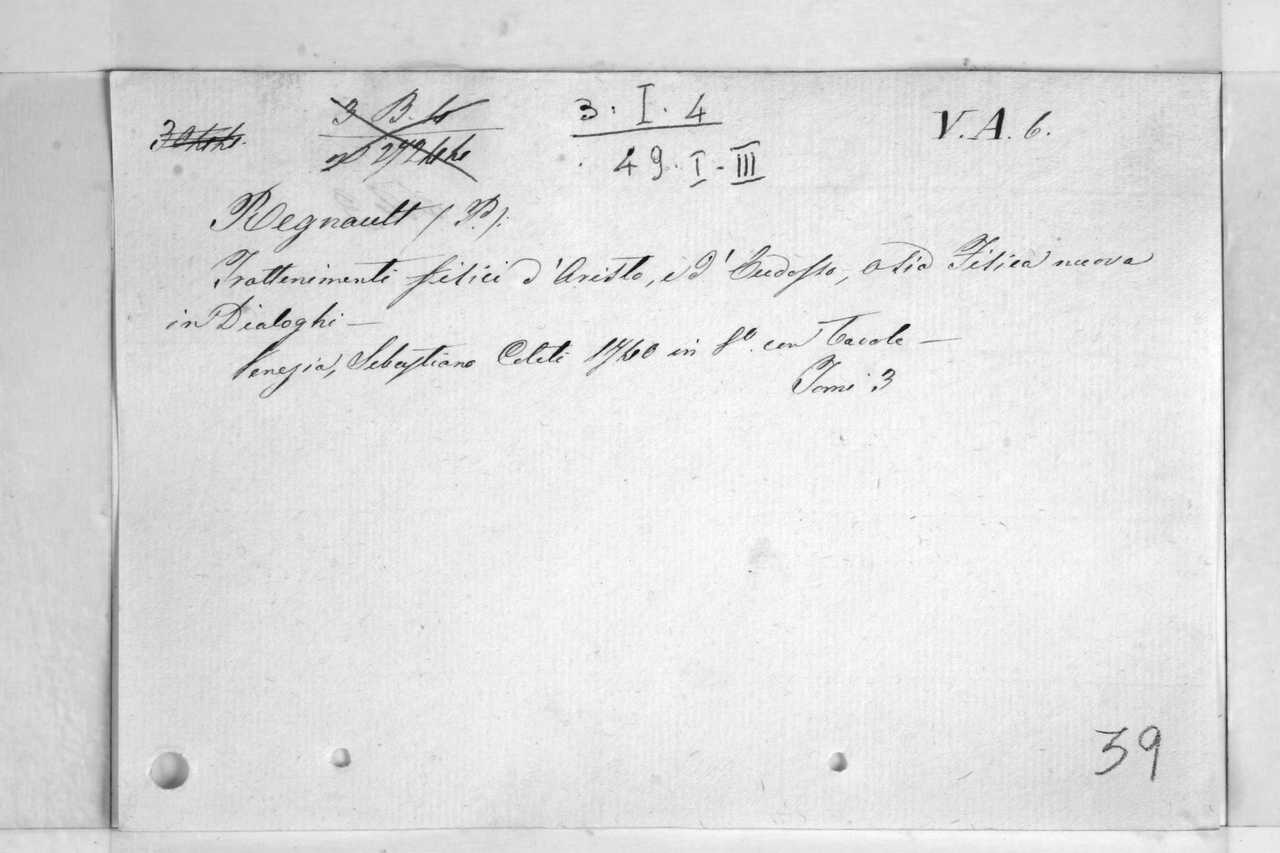 3 B. 4
3 . I . 4
V. A. 6.
49. I - III
Regnault (P.).
Trattenimenti fisici d'Aristo, e d'Eudosso, o sia Fisica nuova
in Dialoghi —
Venezia, Sebastiano Coleti 1760 in 8º. con Tavole —
Tomi 3
39